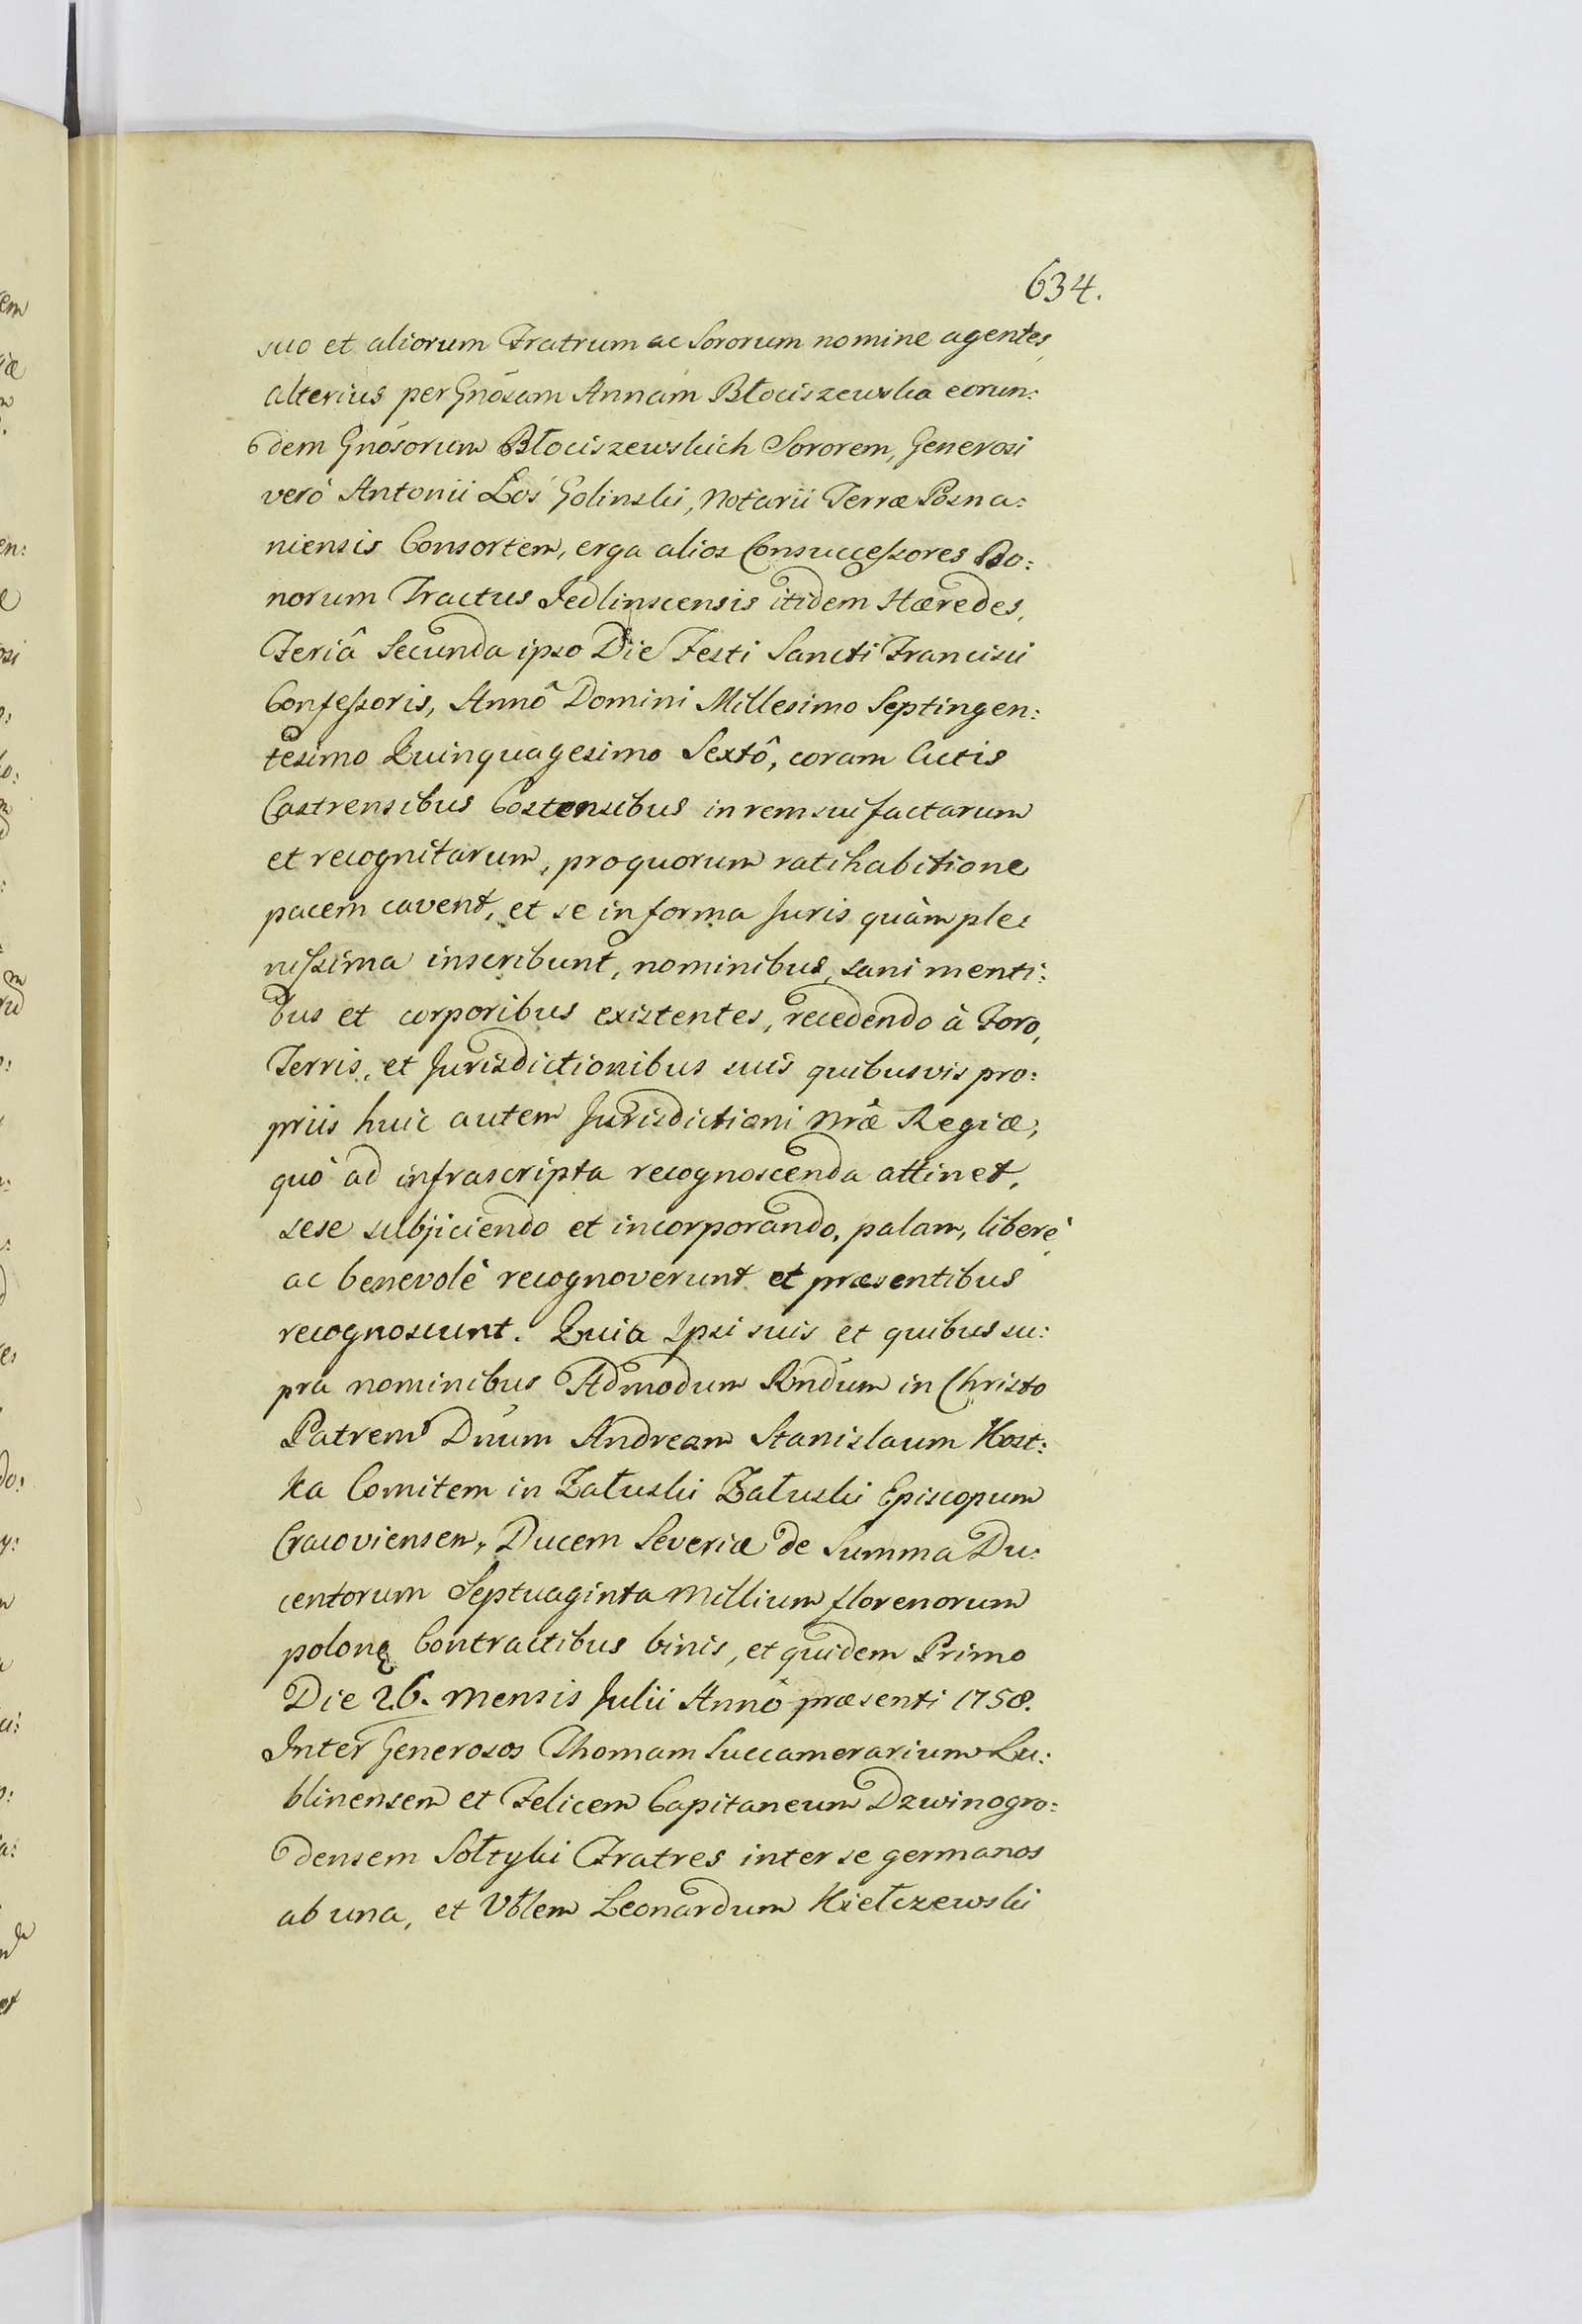 634.
suo et aliorum Fratrum ac Sororum nomine agentes,
alterius per Gnosam Annam Błociszewska eorun:
dem Gnosorum Błociszewskich Sororem, Generosi
verò Antonii Łoś Golinski, Notarii Terræ Posna:
niensis Consortem, erga alios Consuccessores Bo:
norum Tractus Jedlinscensis itidem Hæredes,
Feriâ Secunda ipso Die Festi Sancti Francisci
Confessoris, Annô Domini Millesimo Septingen:
tesimo Quinquagesimo Sextô, coram Actis
Castrensibus Costensibus in rem sui factarum
et recognitarum, pro quorum ratihabitione
pacem cavent, et se in forma Juris quàm ple:
nissima inscribunt, nominibus, sani menti:
bus et corporibus existentes, recedendo à Foro,
Terris, et Jurisdictionibus suis quibusvis pro:
priis huic autem Jurisdictioni Nræ Regiæ,
quò ad infrascripta recognoscenda attinet,
sese subjiciendo et incorporando, palam, liberè
ac benevolè recognoverunt et præsentibus
recognoscunt. Quia Ipsi suis et quibus su:
pra nominibus Admodum Rndum in Christo
Patrem Dnum Andream Stanislaum Kost:
ka Comitem in Załuski Załuski Episcopum
Cracoviensem, Ducem Severiæ de Summa Du:
centorum Septuaginta Millium florenorum
polonę Contractibus binis, et quidem Primo
Die 26. Mensis Julii Annô præsenti 1758.
Inter Generosos Thomam Succamerarium Lu:
blinensem et Felicem Capitaneum Dzwinogro:
densem Sołtyki Fratres inter se germanos
ab una, et Vblem Leonardum Kiełczewski